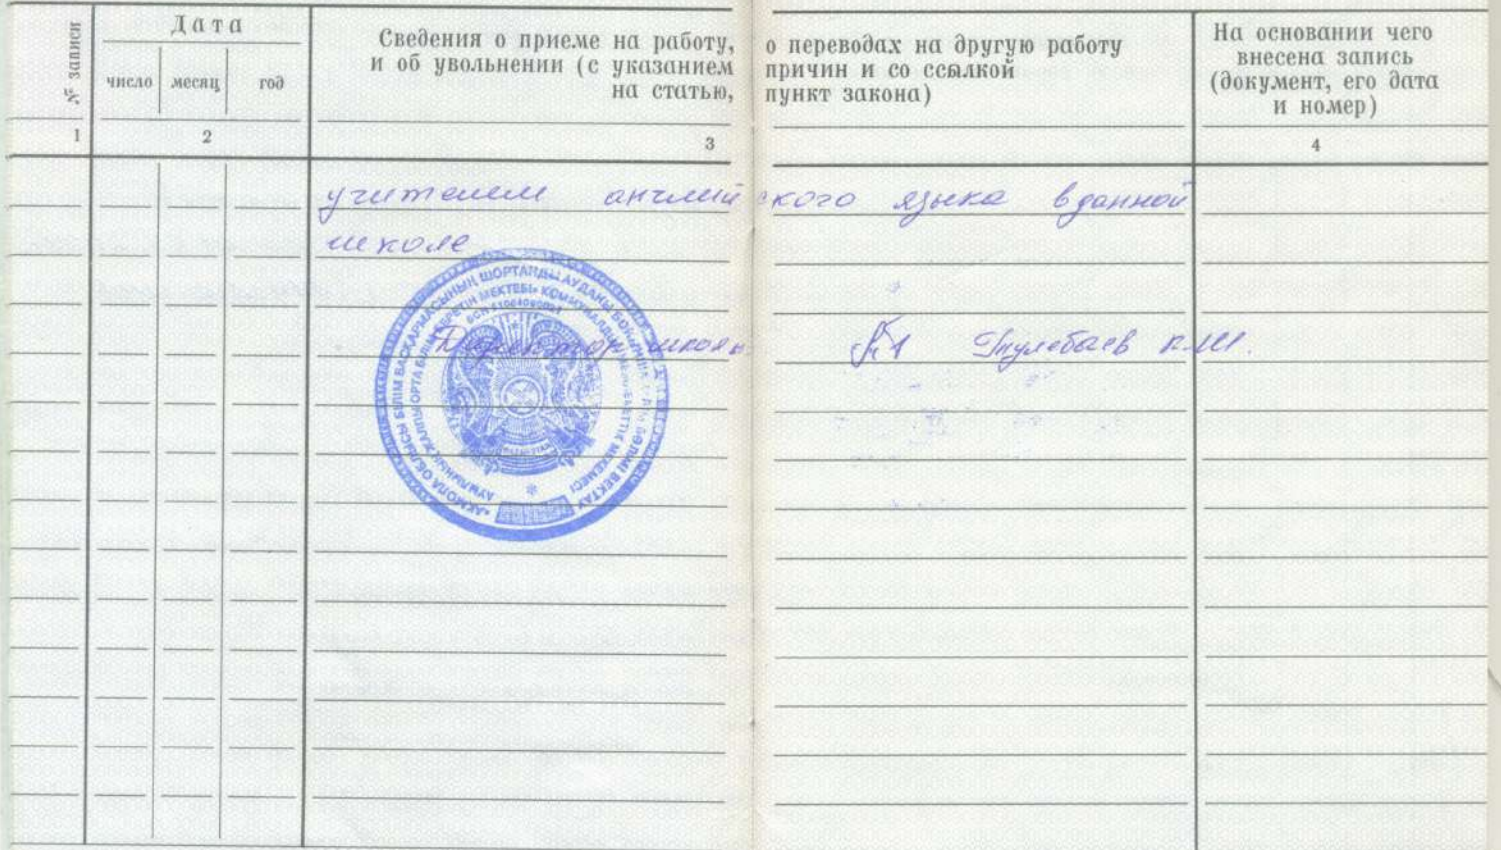 № записи
Дата
число месяц год
Сведения о приеме на работу, о переводах на другую работу
и об увольнении (с указанием причин и со ссылкой
на статью, пункт закона)
На основании чего
внесена запись
(документ, его дата
и номер)
1 2 3 4
учителем английского языка в данной
школе
Директор школы Тулебаев К.Ш.
«АҚМОЛА ОБЛЫСЫ БІЛІМ БАСҚАРМАСЫНЫҢ ШОРТАНДЫ АУДАНЫ БОЙЫНША БӨЛІМІ БЕКТАУ
АУЫЛЫНЫҢ ЖАЛПЫ ОРТА БІЛІМ БЕРЕТІН МЕКТЕБІ» КОММУНАЛДЫҚ МЕМЛЕКЕТТІК МЕКЕМЕСІ